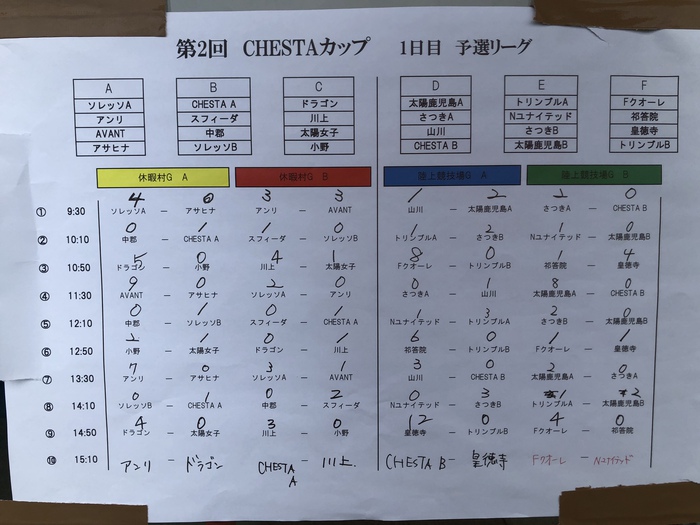 第2回 CHESTAカップ 1日目 予選リーグ
A B C D E F
ソレッソA CHESTA A ドラゴン 太陽鹿児島A トリンブルA Fクオーレ
アンリ スフィーダ 川上 さつきA Nユナイテッド 祁答院
AVANT 中郡 太陽女子 山川 さつきB 皇徳寺
アサヒナ ソレッソB 小野 CHESTA B 太陽鹿児島B トリンブルB
休暇村G A 休暇村G B 陸上競技場G A 陸上競技場G B
4 0 3 3 1 2 2 0
① 9:30 ソレッソA － アサヒナ アンリ － AVANT 山川 － 太陽鹿児島A さつきA － CHESTA B
0 1 1 0 1 2 1 0
② 10:10 中郡 － CHESTA A スフィーダ － ソレッソB トリンブルA － さつきB Nユナイテッド － 太陽鹿児島B
5 0 4 1 8 0 1 4
③ 10:50 ドラゴン － 小野 川上 － 太陽女子 Fクオーレ － トリンブルB 祁答院 － 皇徳寺
9 0 2 0 0 1 8 0
④ 11:30 AVANT － アサヒナ ソレッソA － アンリ さつきA － 山川 太陽鹿児島A － CHESTA B
0 1 0 1 1 3 2 0
⑤ 12:10 中郡 － ソレッソB スフィーダ － CHESTA A Nユナイテッド － トリンブルA さつきB － 太陽鹿児島B
2 1 0 1 6 0 1 1
⑥ 12:50 小野 － 太陽女子 ドラゴン － 川上 祁答院 － トリンブルB Fクオーレ － 皇徳寺
7 0 3 1 3 0 2 0
⑦ 13:30 アンリ － アサヒナ ソレッソA － AVANT 山川 － CHESTA B 太陽鹿児島A － さつきA
0 1 0 2 0 3 1 2
⑧ 14:10 ソレッソB － CHESTA A 中郡 － スフィーダ Nユナイテッド － さつきB トリンブルA － 太陽鹿児島B
4 0 3 0 12 0 4 0
⑨ 14:50 ドラゴン － 太陽女子 川上 － 小野 皇徳寺 － トリンブルB Fクオーレ － 祁答院
⑩ 15:10 アンリ － ドラゴン CHESTA A － 川上. CHESTA B － 皇徳寺 Fクオーレ － Nユナイテッド